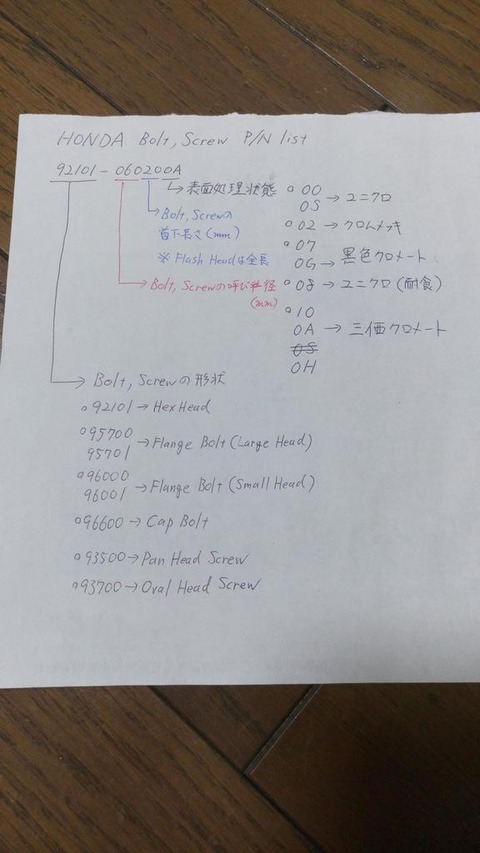 HONDA Bolt, Screw P/N list
92101-060200A
→表面処理状態
→Bolt, Screwの
首下長さ(mm)
※ Flash Headは全長
→Bolt, Screwの呼び径
(mm)
○00
0S → ユニクロ
○02 → クロムメッキ
○07
0G → 黒色クロメート
○08 → ユニクロ(耐食)
○10
0A → 三価クロメート
0H
→ Bolt, Screwの形状
○92101→HexHead
○95700
95701 →Flange Bolt(Large Head)
○96000
96001 →Flange Bolt(Small Head)
○96600→Cap Bolt
○93500→Pan Head Screw
○93700→Oval Head Screw